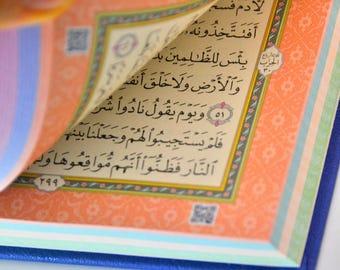 لِأَدَمَ
أَفَتَتَّخِذُونَهُ
بِئْسَ لِلظَّٰلِمِينَ
وَٱلْأَرْضِ وَلَا خَلْقَ
٥١ وَيَوْمَ يَقُولُ نَادُوا۟
فَلَمْ يَسْتَجِيبُوا۟ لَهُمْ وَجَعَلْنَا بَيْنَهُم
ٱلنَّارَ فَظَنُّوٓا۟ أَنَّهُم مُّوَاقِعُوهَا وَلَمْ
٢٩٩